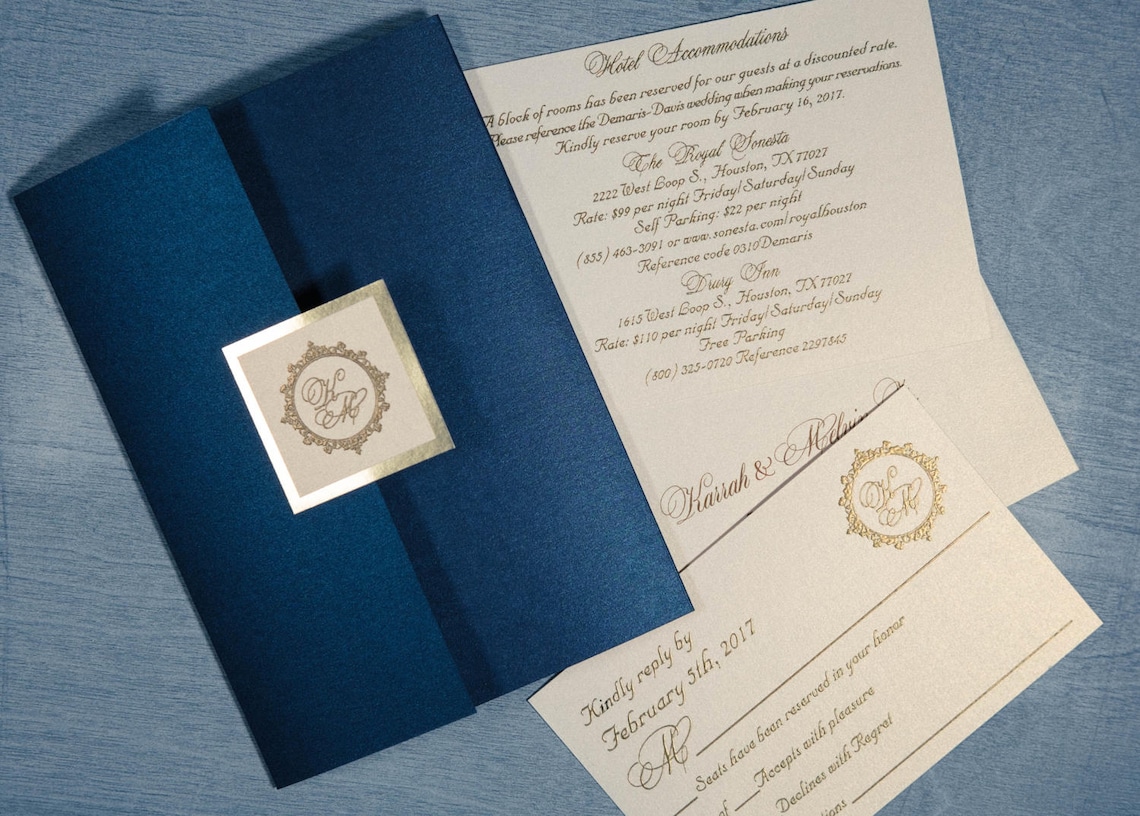 Hotel Accommodations
A block of rooms has been reserved for our guests at a discounted rate.
Please reference the Demaris-Davis wedding when making your reservations.
Kindly reserve your room by February 16, 2017.
The Royal Sonesta
2222 West Loop S., Houston, TX 77027
Rate: $99 per night Friday/Saturday/Sunday
Self Parking: $22 per night
(855) 463-3091 or www.sonesta.com/royalhouston
Reference code 0310Demaris
Drury Inn
1615 West Loop S., Houston, TX 77027
Rate: $110 per night Friday/Saturday/Sunday
Free Parking
(800) 325-0720 Reference 2297845
Karrah & Melvin
K M
K M
Kindly reply by
February 5th, 2017
M
Seats have been reserved in your honor
of
Accepts with pleasure
Declines with Regret